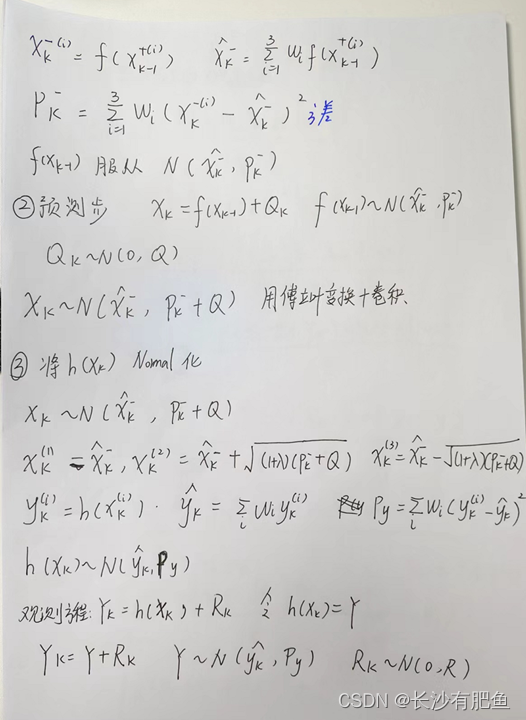 X_k^{-(i)} = f(X_{k-1}^{+(i)})    \hat{X}_k^- = \sum_{i=1}^{3} w_i f(X_{k-1}^{+(i)})
P_k^- = \sum_{i=1}^{3} w_i (X_k^{-(i)} - \hat{X}_k^-)^2 方差
f(X_{k-1}) 服从 N(\hat{X}_k^-, P_k^-)
② 预测步    X_k = f(X_{k-1}) + Q_k    f(X_{k-1}) ~ N(\hat{X}_k^-, P_k^-)
Q_k ~ N(0, Q)
X_k ~ N(\hat{X}_k^-, P_k^- + Q)    用傅立叶变换+卷积、
③ 将 h(X_k) Nomal 化
X_k ~ N(\hat{X}_k^-, P_k^- + Q)
X_k^{(1)} = \hat{X}_k^-, X_k^{(2)} = \hat{X}_k^- + \sqrt{(1+λ)(P_k^- + Q)}    X_k^{(3)} = \hat{X}_k^- - \sqrt{(1+λ)(P_k^- + Q)}
y_k^{(i)} = h(X_k^{(i)}).    \hat{y}_k = \sum_i w_i y_k^{(i)}    P_y = \sum_i w_i (y_k^{(i)} - \hat{y}_k)^2
h(X_k) ~ N(\hat{y}_k, P_y)
观测方程: Y_k = h(X_k) + R_k    令 h(X_k) = Y
Y_k = Y + R_k    Y ~ N(\hat{y}_k, P_y)    R_k ~ N(0, R)
CSDN @长沙有肥鱼